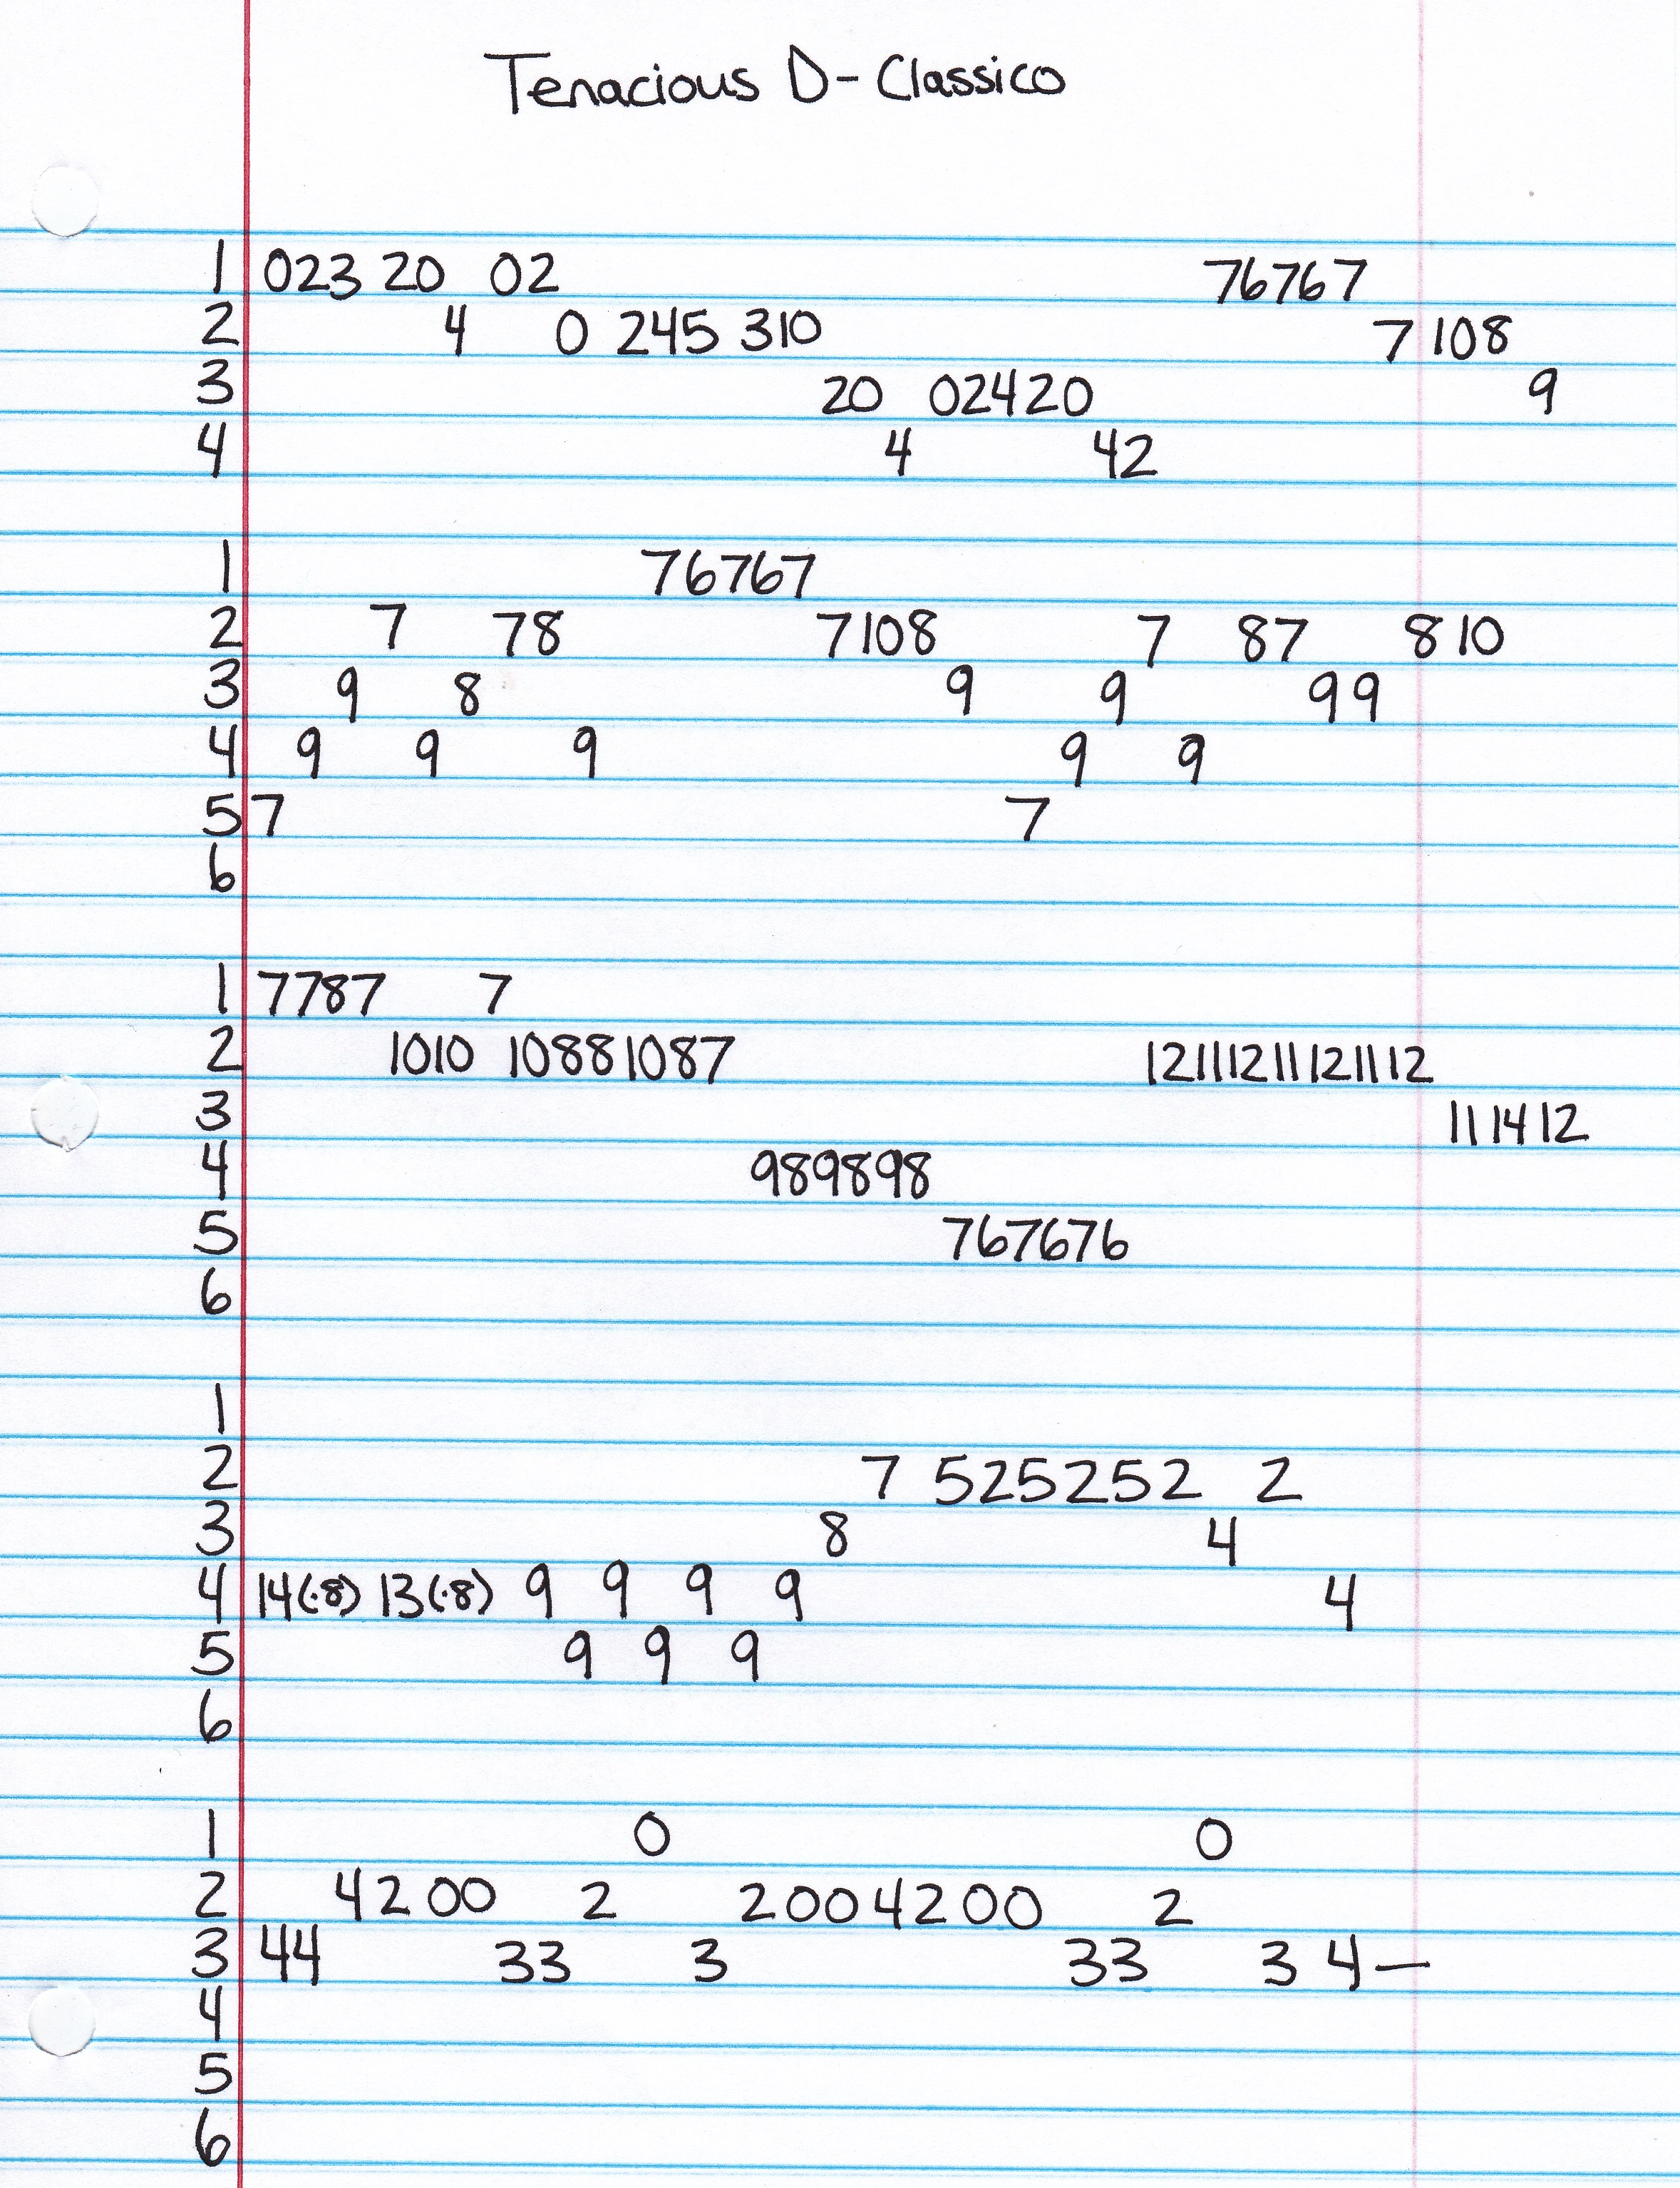 Tenacious D - Classico
1 023 20 02 76767
2 4 0 245 310 7 108
3 20 02420 9
4 4 42
1 76767
2 7 78 7108 7 87 8 10
3 9 8 9 9 99
4 9 9 9 9 9
5 7 7
6
1 7787 7
2 1010 10881087 12111211121112
3 11 14 12
4 989898
5 767676
6
1
2 7 525252 2
3 8 4
4 14(.8) 13(.8) 9 9 9 9 4
5 9 9 9
6
1 0 0
2 4200 2 2004200 2
3 44 33 3 33 3 4—
4
5
6